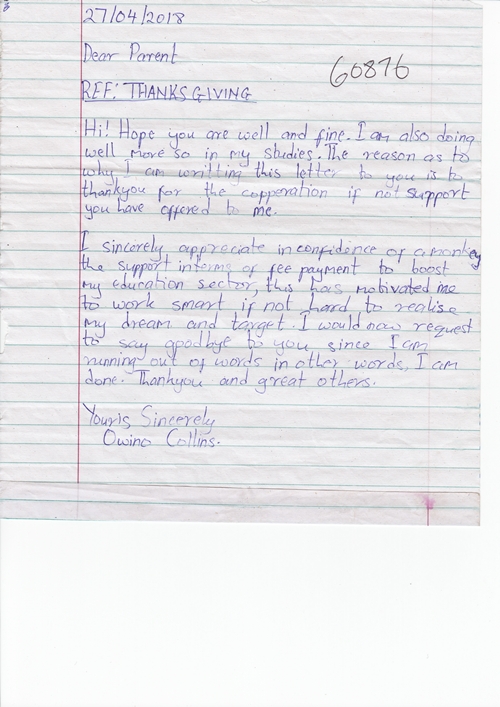 27/04/2018
Dear Parent
60876
REF: THANKSGIVING
Hi! Hope you are well and fine. I am also doing
well more so in my studies. The reason as to
why I am writting this letter to you is to
thankyou for the copperation if not support
you have offered to me.
I sincerely appreciate in confidence of a monkey
the support interms of fee payment to boost
my education sector, this has motivated me
to work smart if not hard to realise
my dream and target. I would now request
to say goodbye to you since I am
running out of words in other words, I am
done. Thankyou and great others.
Youris Sincerely
Owino Collins.